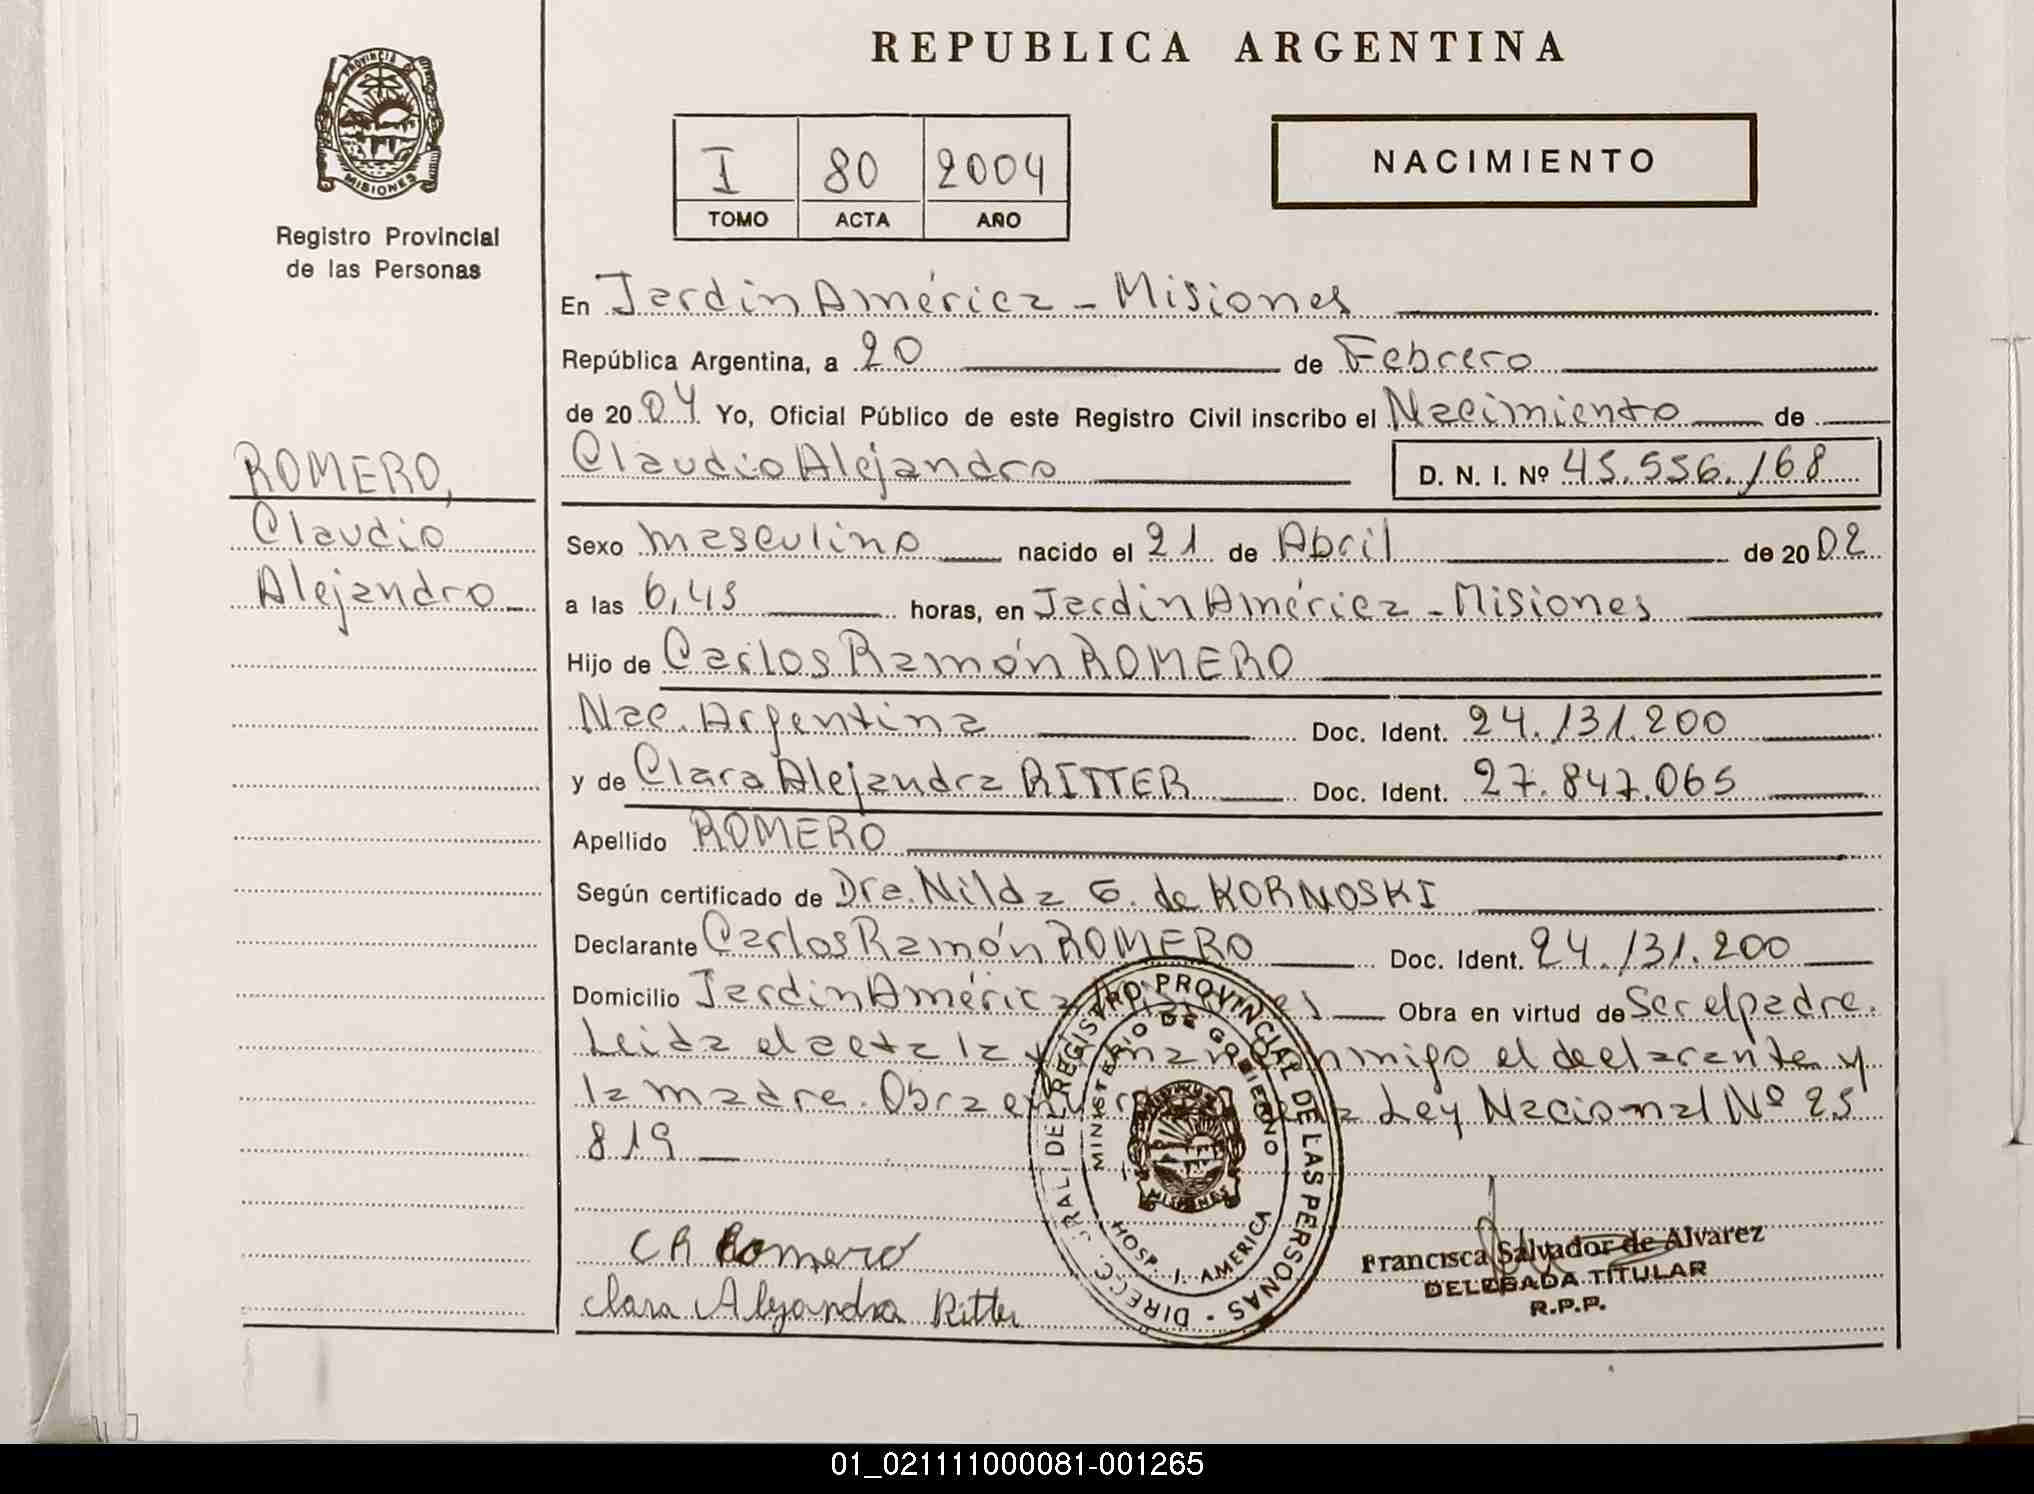 REPUBLICA ARGENTINA
PROVINCIA DE
MISIONES
Registro Provincial
de las Personas
I 80 2004
TOMO ACTA AÑO
NACIMIENTO
En Jardin América - Misiones
República Argentina, a 20 de Febrero
de 2004 Yo, Oficial Público de este Registro Civil inscribo el Nacimiento de
Claudio Alejandro D. N. I. Nº 45.556.168
ROMERO,
Claudio
Alejandro
Sexo masculino nacido el 21 de Abril de 2002
a las 6,45 horas, en Jardin América - Misiones
Hijo de Carlos Ramón ROMERO
Nac. Argentina Doc. Ident. 24.131.200
y de Clara Alejandra RITTER Doc. Ident. 27.847.065
Apellido ROMERO
Según certificado de Dra. Nilda G. de KORNOSKI
Declarante Carlos Ramón ROMERO Doc. Ident. 24.131.200
Domicilio Jardin América Obra en virtud de Ser el padre.
Leida el acta la conmigo el declarante y
la madre. Obra en Ley Nacional Nº 25
819
DIRECC. GRAL. DEL REGISTRO PROVINCIAL DE LAS PERSONAS
MINISTERIO DE GOBIERNO
MISIONES
HOSP. J. AMERICA
CR Romero
Clara Alejandra Ritter
Francisca Salvador de Alvarez
DELEGADA TITULAR
R.P.P.
01_021111000081-001265